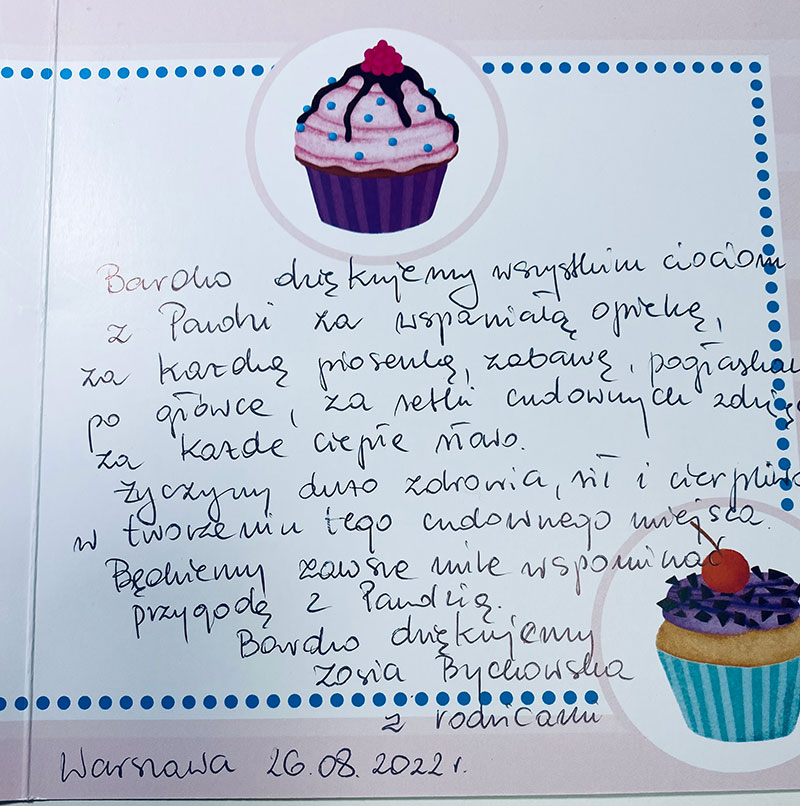 Bardzo dziękujemy wszystkim ciociom
z Pandzi za wspaniałą opiekę,
za każdą piosenkę, zabawę, pogłaskan
po główce, za setki cudownych zdjęć
za każde ciepłe słowo.
Życzymy dużo zdrowia, sił i cierpliwo
w tworzeniu tego cudownego miejsca.
Będziemy zawsze miło wspominać
przygodę z Pandzią.
Bardzo dziękujemy
Zosia Bychowska
z rodzicami
Warszawa 26.08.2022 r.